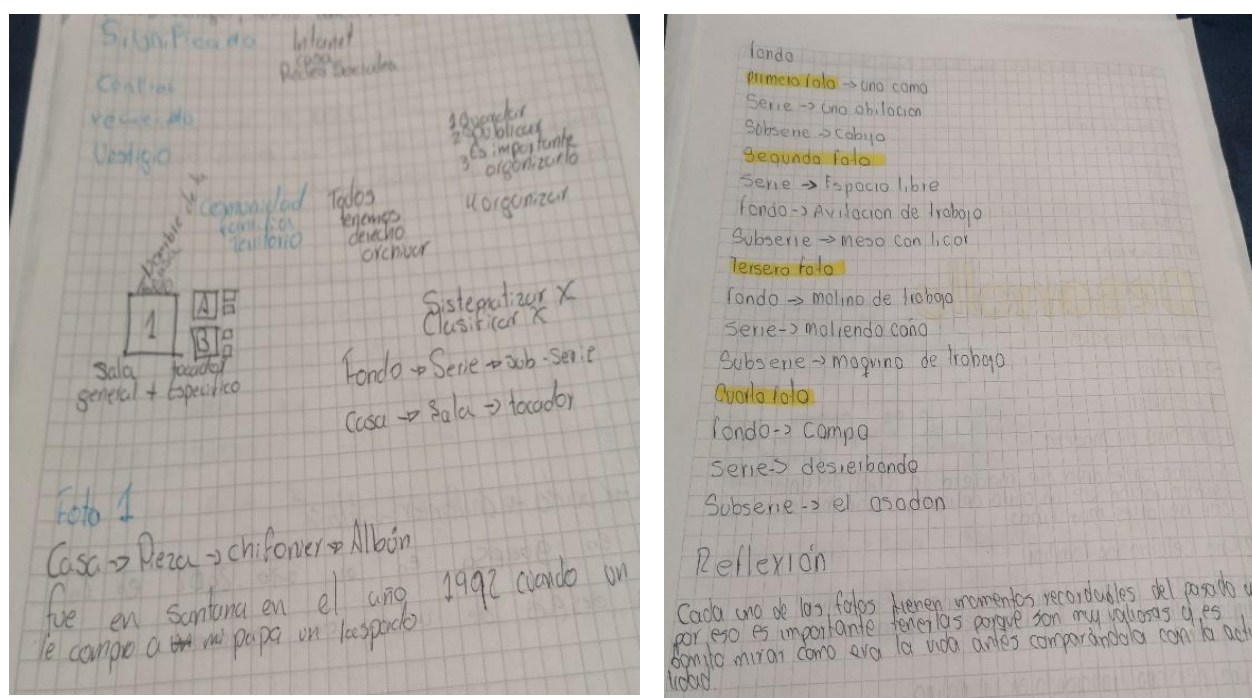 Significado
Internet
casa
Redes Sociales
Control
recuerdo
Vestigio
1 Guardar
2 publicar
3 Es importante
organizarlo
4 organizar
Comunidad
familia
territorio
Todos
tenemos
derecho
archivar
Nombre de la
1
A
B
Sala
tocador
general + Especifico
Sistematizar X
Clasificar X
Fondo → Serie → sub-serie
Casa → Sala → tocador
Foto 1
Casa → Pieza → chifonier → Albún
fue en Santana en el año 1992 cuando un
le compro a mi papa un laspado
fondo
primera foto → una cama
Serie → una abitacion
Subserie → cobijo
Segunda foto
Serie → Espacio libre
fondo → Avitacion de trabajo
Subserie → mesa con licor
Tersera foto
fondo → molino de trabajo
Serie → moliendo caña
Subserie → maquina de trabajo
Cuarta foto
fondo → campo
Serie → desierbando
Subserie → el asadon
Reflexión
Cada una de las fotos tienen momentos recordables del pasado
por eso es importante tenerlas porque son muy valiosas y es
Bonito mirar como era la vida antes comparándola con la act
lidad.